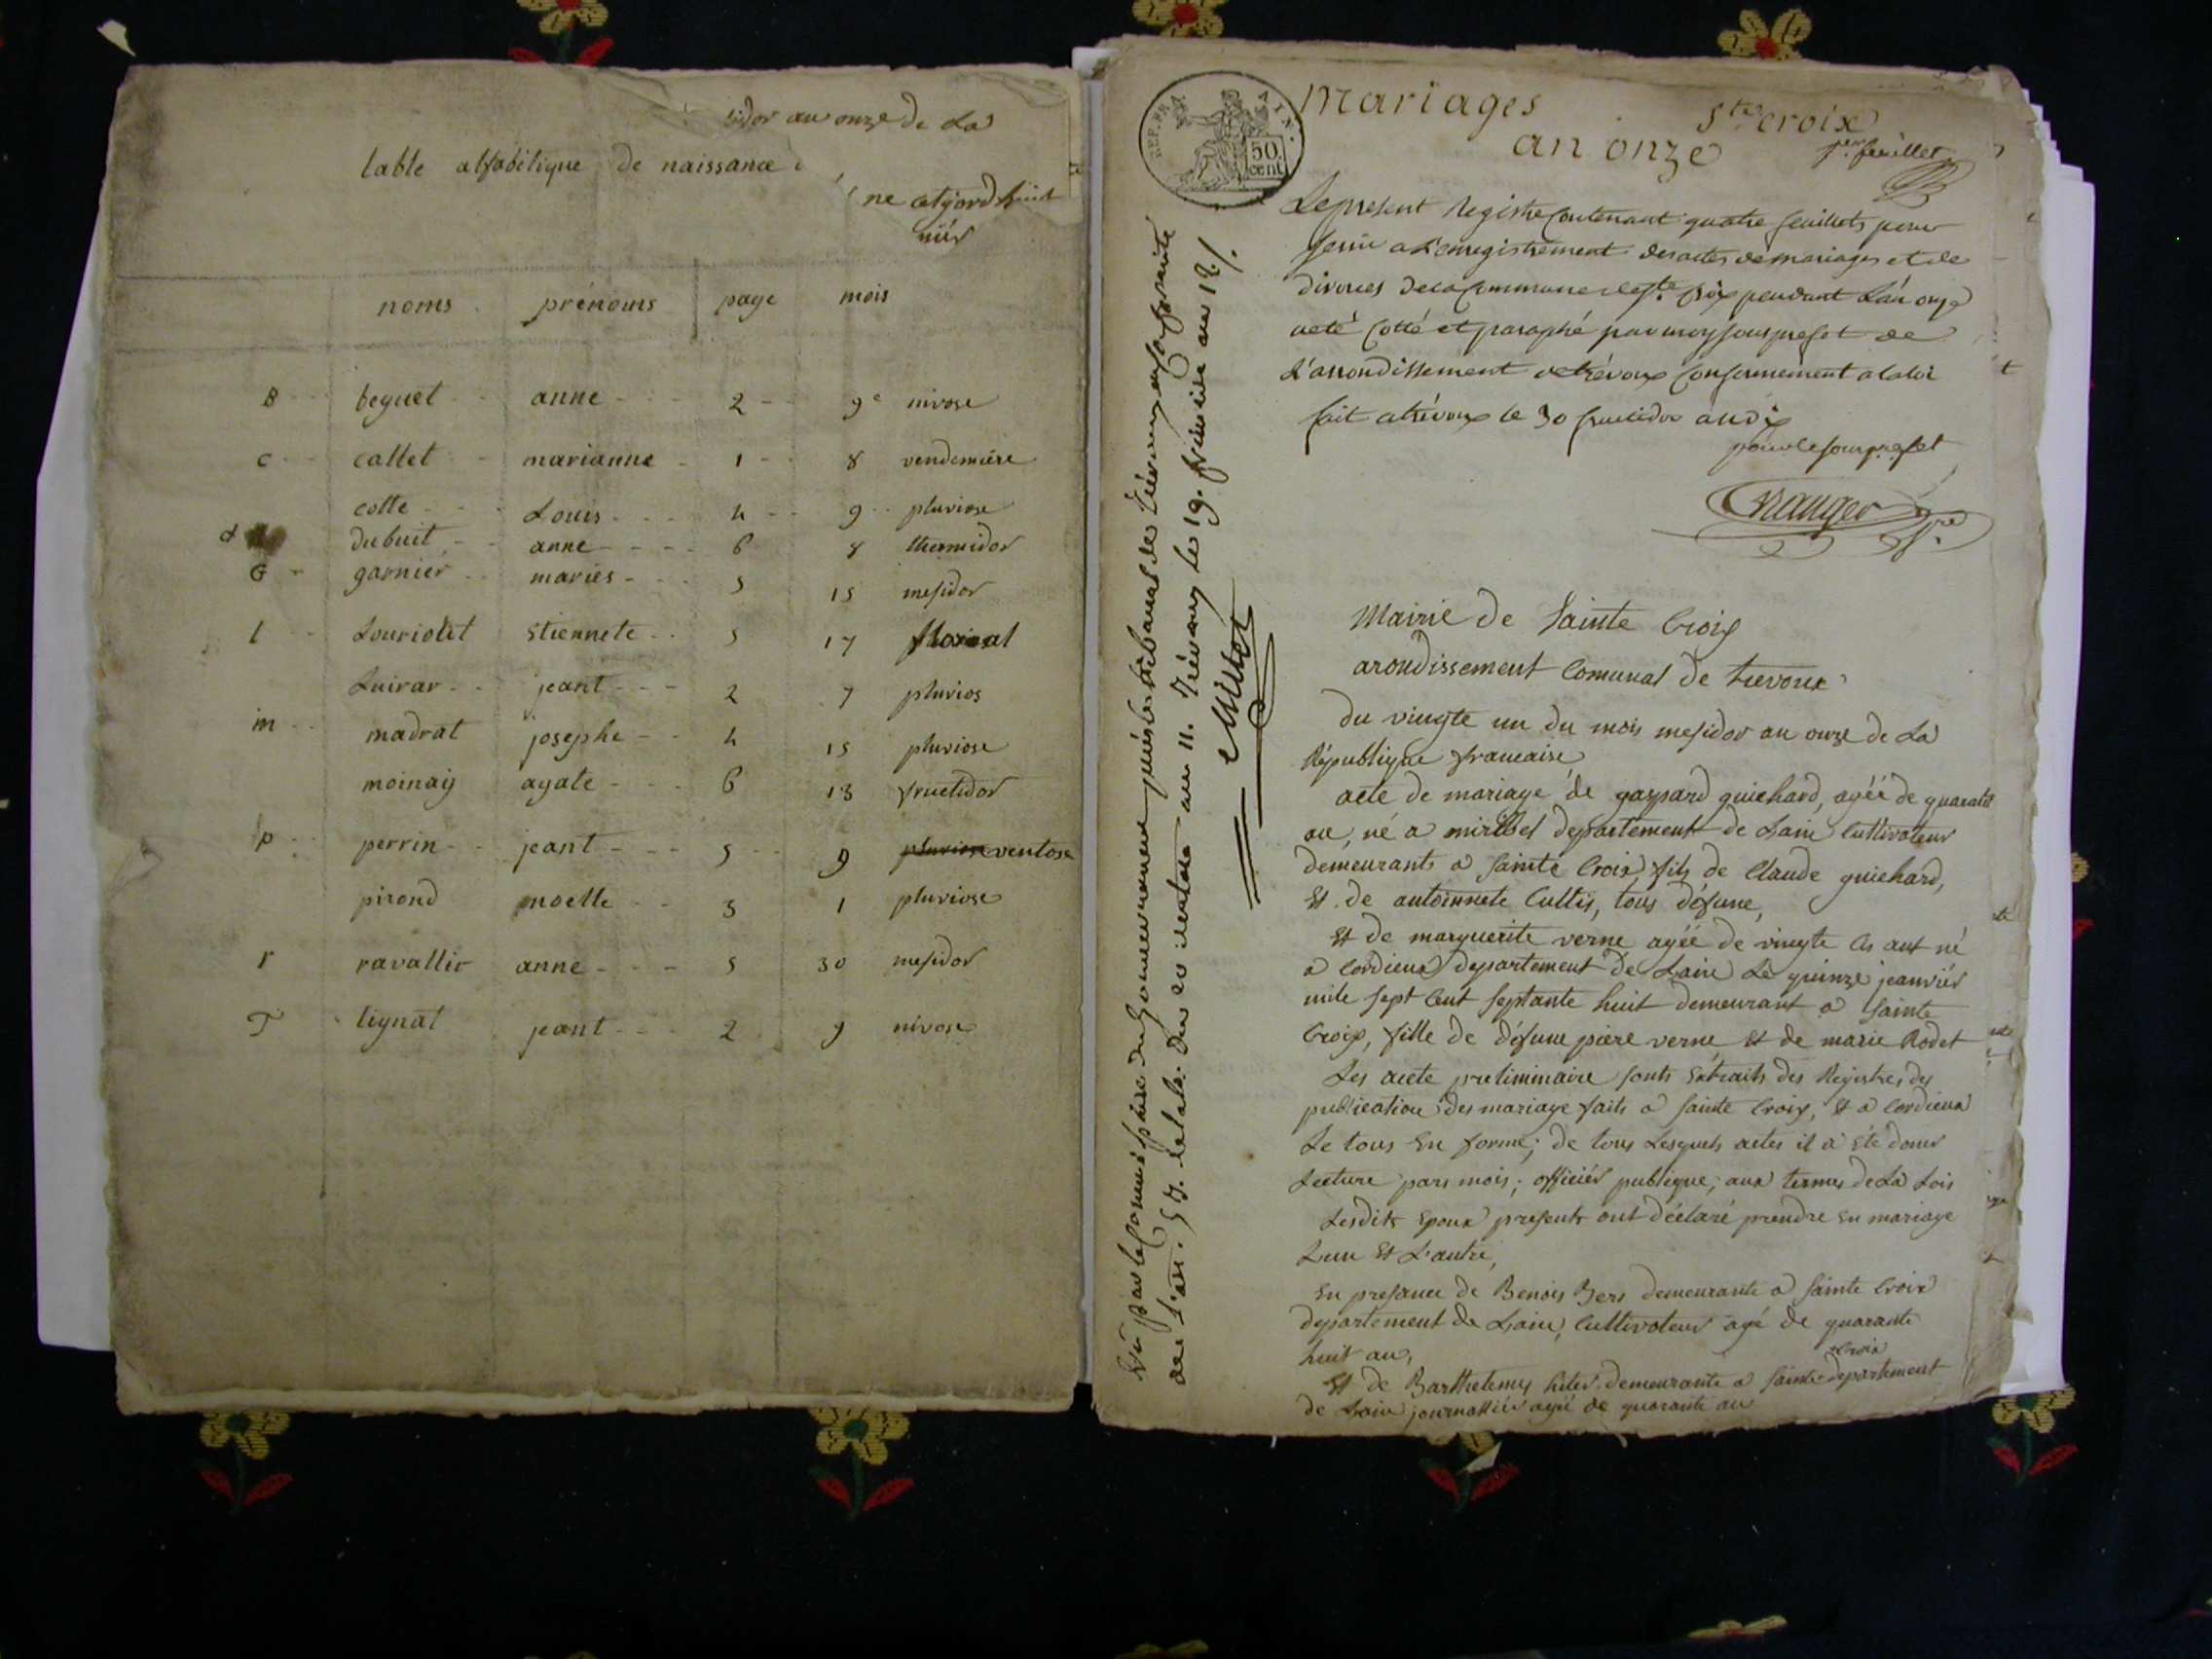 sidor an onze de La
table alfabétique de naissance
ne aetjordhuit
noms prénoms page mois
B beguet anne 2 9e nivose
C callet marianne 1 8 vendemiére
cotte Louis 4 9 pluviose
d dubuit anne 6 8 thermidor
G garnier maries 5 15 mesidor
l Louriotet Etiennete 5 17 floréal
Luirar jeant 2 7 pluvios
m madrat josephe 4 15 pluviose
moinaij agate 6 13 fructidor
p perrin jeant 5 9 pluviose ventose
pirond moelle 3 1 pluviose
r ravallir anne 5 30 mesidor
T tignat jeant 2 9 nivose
REP. FRA. AIN.
50 cent
Mariages Ste croix
an onze
1er feuillet
Le present Registre Contenant quatre feuillets pour
servir a L'enregistrement des actes de mariages et de
divorces de la Commune de Ste Croix pendant L'an onze
aeté Cotté et paraphé par moy sous prefet de
L'arrondissement de trévoux Conformement a la loi
fait a trévoux le 30 fructidor an dix
pour le sous prefet
Mairie de Sainte Croix
arondissement Comunal de trevoux
du vingte un du mois mesidor an onze de La
République francaise
acte de mariage de gaspard guichard, agéé de quarante
an, né a miribel departement de Lain Cultivateur
demeurants a Sainte Croix, fils de Claude guichard,
Et de antoinnete Cuttis, tous défune,
Et de marguerite verne agéé de vingte Cis ant né
a Cordieux departement de Lain Le quinze jeanvier
mile sept Cent septante huit demeurant a Sainte
Croix, fille de défune piere verne Et de marie Rodet
Les acete preliminaire sonts Extraits des Registres des
publication des mariage faits a Sainte Croix, Et a Cordieux
Le tous En forme; de tous Lesquels actes il a été doner
Lecture pars mois; officiér publique; aux termes de La Lois
Lesdits Epoux presents ont déclaré prendre En mariage
L'un Et L'autre,
En presance de Benois Bers demeurante a Sainte Croix
departement de Lain, Cultivateur agé de quarante
huit an,
Et de Barthelemy demeurante a Sainte Croix departement
de Lain journallier agé de quarante an